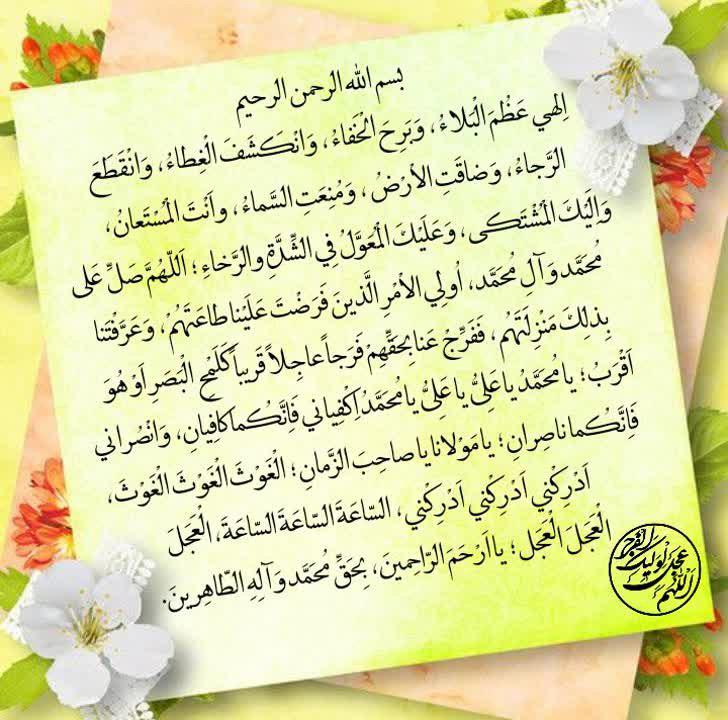 بسم الله الرحمن الرحیم
اِلهي عَظُمَ الْبَلاءُ ، وَبَرِحَ الْخَفاءُ ، وَانْكَشَفَ الْغِطاءُ ، وَانْقَطَعَ
الرَّجاءُ ، وَضاقَتِ الأرْضُ ، وَمُنِعَتِ السَّماءُ ، واَنْتَ الْمُسْتَعانُ ،
وَاِلَيْكَ الْمُشْتَكى ، وَعَلَيْكَ الْمُعَوَّلُ فِي الشِّدَّةِ والرَّخاءِ ؛ اَللّهُمَّ صَلِّ عَلى
مُحَمَّد وَآلِ مُحَمَّد، اُولِي الأمْرِ الَّذينَ فَرَضْتَ عَلَيْنا طاعَتَهُمْ ، وَعَرَّفْتَنا
بِذلِكَ مَنْزِلَتَهُم ، فَفَرِّجْ عَنا بِحَقِّهِمْ فَرَجاً عاجِلاً قَريباً كَلَمْحِ الْبَصَرِ اَوْ هُوَ
اَقْرَبُ ؛ يا مُحَمَّدُ يا عَلِيُّ يا عَلِيُّ يا مُحَمَّدُ اِكْفِياني فَاِنَّكُما كافِيانِ ، وَانْصُراني
فَاِنَّكُما ناصِرانِ ؛ يا مَوْلانا يا صاحِبَ الزَّمانِ ؛ الْغَوْثَ الْغَوْثَ الْغَوْثَ ،
اَدْرِكْني اَدْرِكْني اَدْرِكْني ، السّاعَةَ السّاعَةَ السّاعَةَ ، الْعَجَلَ
الْعَجَلَ الْعَجَل ؛ يا اَرْحَمَ الرّاحِمينَ ، بِحَقِّ مُحَمَّد وَآلِهِ الطّاهِرينَ .
اَللّهُمَّ عَجِّل لِوَلِیِّکَ الفَرَج